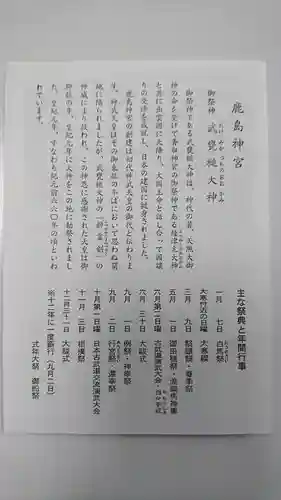 鹿島神宮
御祭神　武甕槌大神
たけみかつちのおおかみ
御祭神である武甕槌大神は、神代の昔、天照大御
神の命を受けて香取神宮の御祭神である経津主大神
と共に出雲国に天降り、大国主命と話し合って国譲
りの交渉を成就し、日本の建国に挺身されました。
鹿島神宮の創建は初代神武天皇の御代と伝わりま
す。神武天皇はその御東征の半ばにおいて思わぬ窮
地に陥られましたが、武甕槌大神の「韴霊剣」の
神威により救われ、この神恩に感謝された天皇は御
即位の年、皇紀元年に大神をこの地に勅祭されまし
た。皇紀元年、すなわち紀元前六六〇年の頃といわ
れています。
主な祭典と年間行事
一月　七日　白馬祭
大寒付近の日曜　大寒禊
三月　九日　祭頭祭・春季祭
五月　一日　御田植祭・流鏑馬神事
六月第二日曜　古武道演武大会
六月　三十日　大祓式
九月　一日　例祭・神幸祭
九月　二日　行宮祭・還幸祭
十月第一日曜　日本古武道交流演武大会
十一月　三日　相撲祭
十二月三十一日　大祓式
※十二年に一度斎行（九月二日）
式年大祭　御船祭